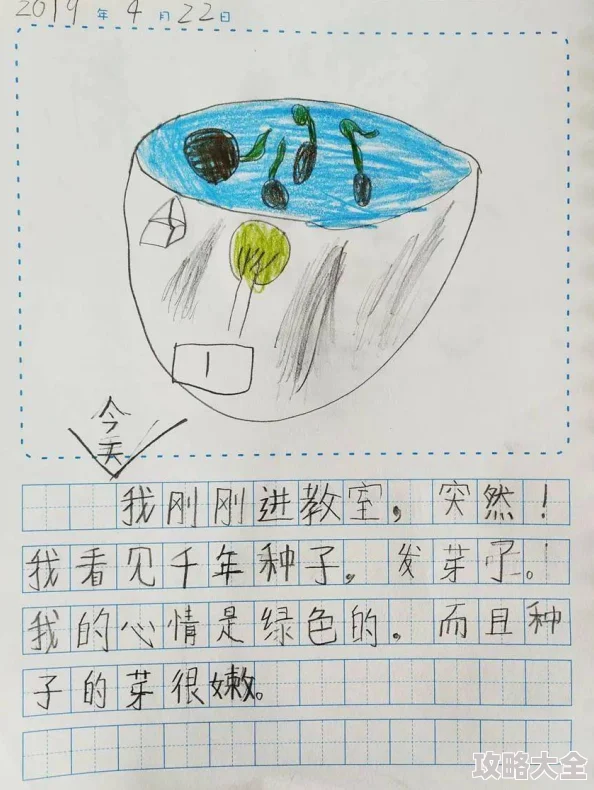 2019年4月22日
1
今天
我刚刚进教室，突然！
我看见千年种子。发芽了。
我的心情是绿色的。而且种
子的芽很嫩。
攻略大全